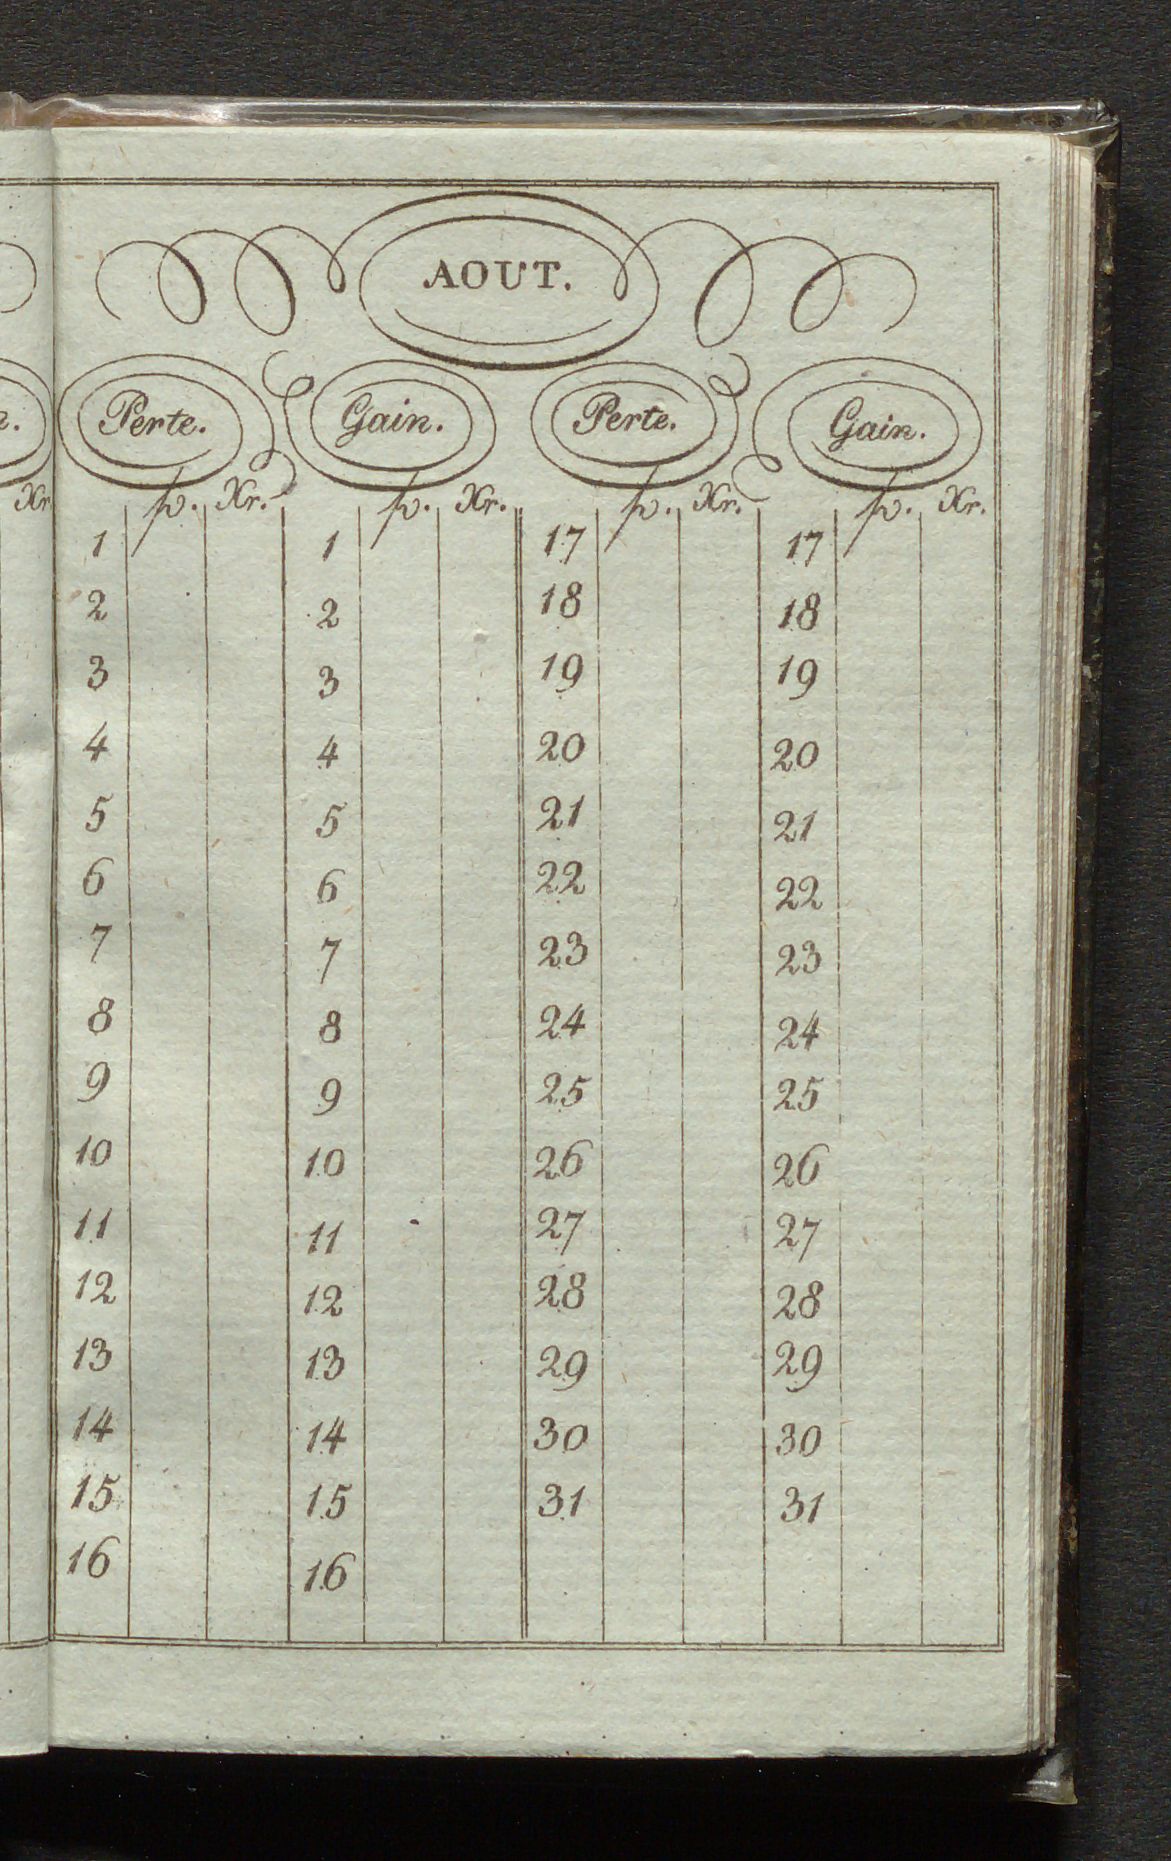 AOUT.
Perte. Gain. Perte. Gain.
Xr. Xr. Xr. Xr.
1 1 17 17
2 2 18 18
3 3 19 19
4 4 20 20
5 5 21 21
6 6 22 22
7 7 23 23
8 8 24 24
9 9 25 25
10 10 26 26
11 11 27 27
12 12 28 28
13 13 29 29
14 14 30 30
15 15 31 31
16 16